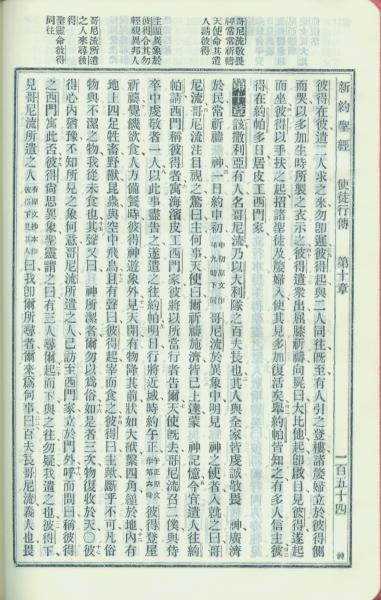 新約聖經 使徒行傳 第十章 一百五十四 神
哥尼流敬畏
神常常祈禱
天使命其遣
人請彼得
主顯異象於
彼得令其勿
輕視異邦人
哥尼流所遣
之人來尋彼得
聖靈命彼得
同往
彼得在彼遣二人求之來勿卽遲彼得起與二人同往旣至有人引之登樓諸嫠婦立於彼得側
而哭以多加生時所製之衣示之彼得遣衆出屈膝祈禱向屍曰大比他起卽啟目見彼得遂起
而坐彼得以手扶之起招諸聖徒及嫠婦入使其見多加復活矣舉約帕皆知之有多人信主彼
得在約帕多日居皮工西門家
第十章 該撒利亞有人名哥尼流乃以大利隊之百夫長也其人與全家皆虔誠敬畏 神廣濟
於民常祈禱 神一日約申初申初原文作第九時下同哥尼流於異象中明見 神之使者入就之曰哥
尼流哥尼流注目視之驚曰主何事天使曰爾祈禱施濟皆已上達蒙 神記憶今宜遣人往約
帕請西門稱彼得者寓海濱皮工西門家彼將以所當行者告爾天使旣去哥尼流召二僕與侍
卒中虔敬者一人以此事盡告之遂遣之往約帕明日行將近城時約午正午正原文作第六時彼得登屋
祈禱覺饑欲食人方備餐時彼得神遊象外見天開有物降其前狀如大布縶四角縋於地內有
地上四足牲畜野獸昆蟲與空中飛鳥且有聲曰彼得起宰而食之彼得曰主歟斷乎不可凡俗
物與不潔之物我從未食也其聲又曰 神所潔者爾勿以爲俗如是者三次物復收於天○彼
得心內猶豫不知所見之象何意哥尼流所遣之人已訪至西門家立於門外呼而問曰稱彼得
之西門寓此否彼得尙思異象聖靈謂之曰有三人尋爾起而下與之往勿疑我遣之也彼得下
見哥尼流所遣之人有原文抄本作彼得下見其人曰我卽爾所尋者爾來爲何事曰百夫長哥尼流義人也畏